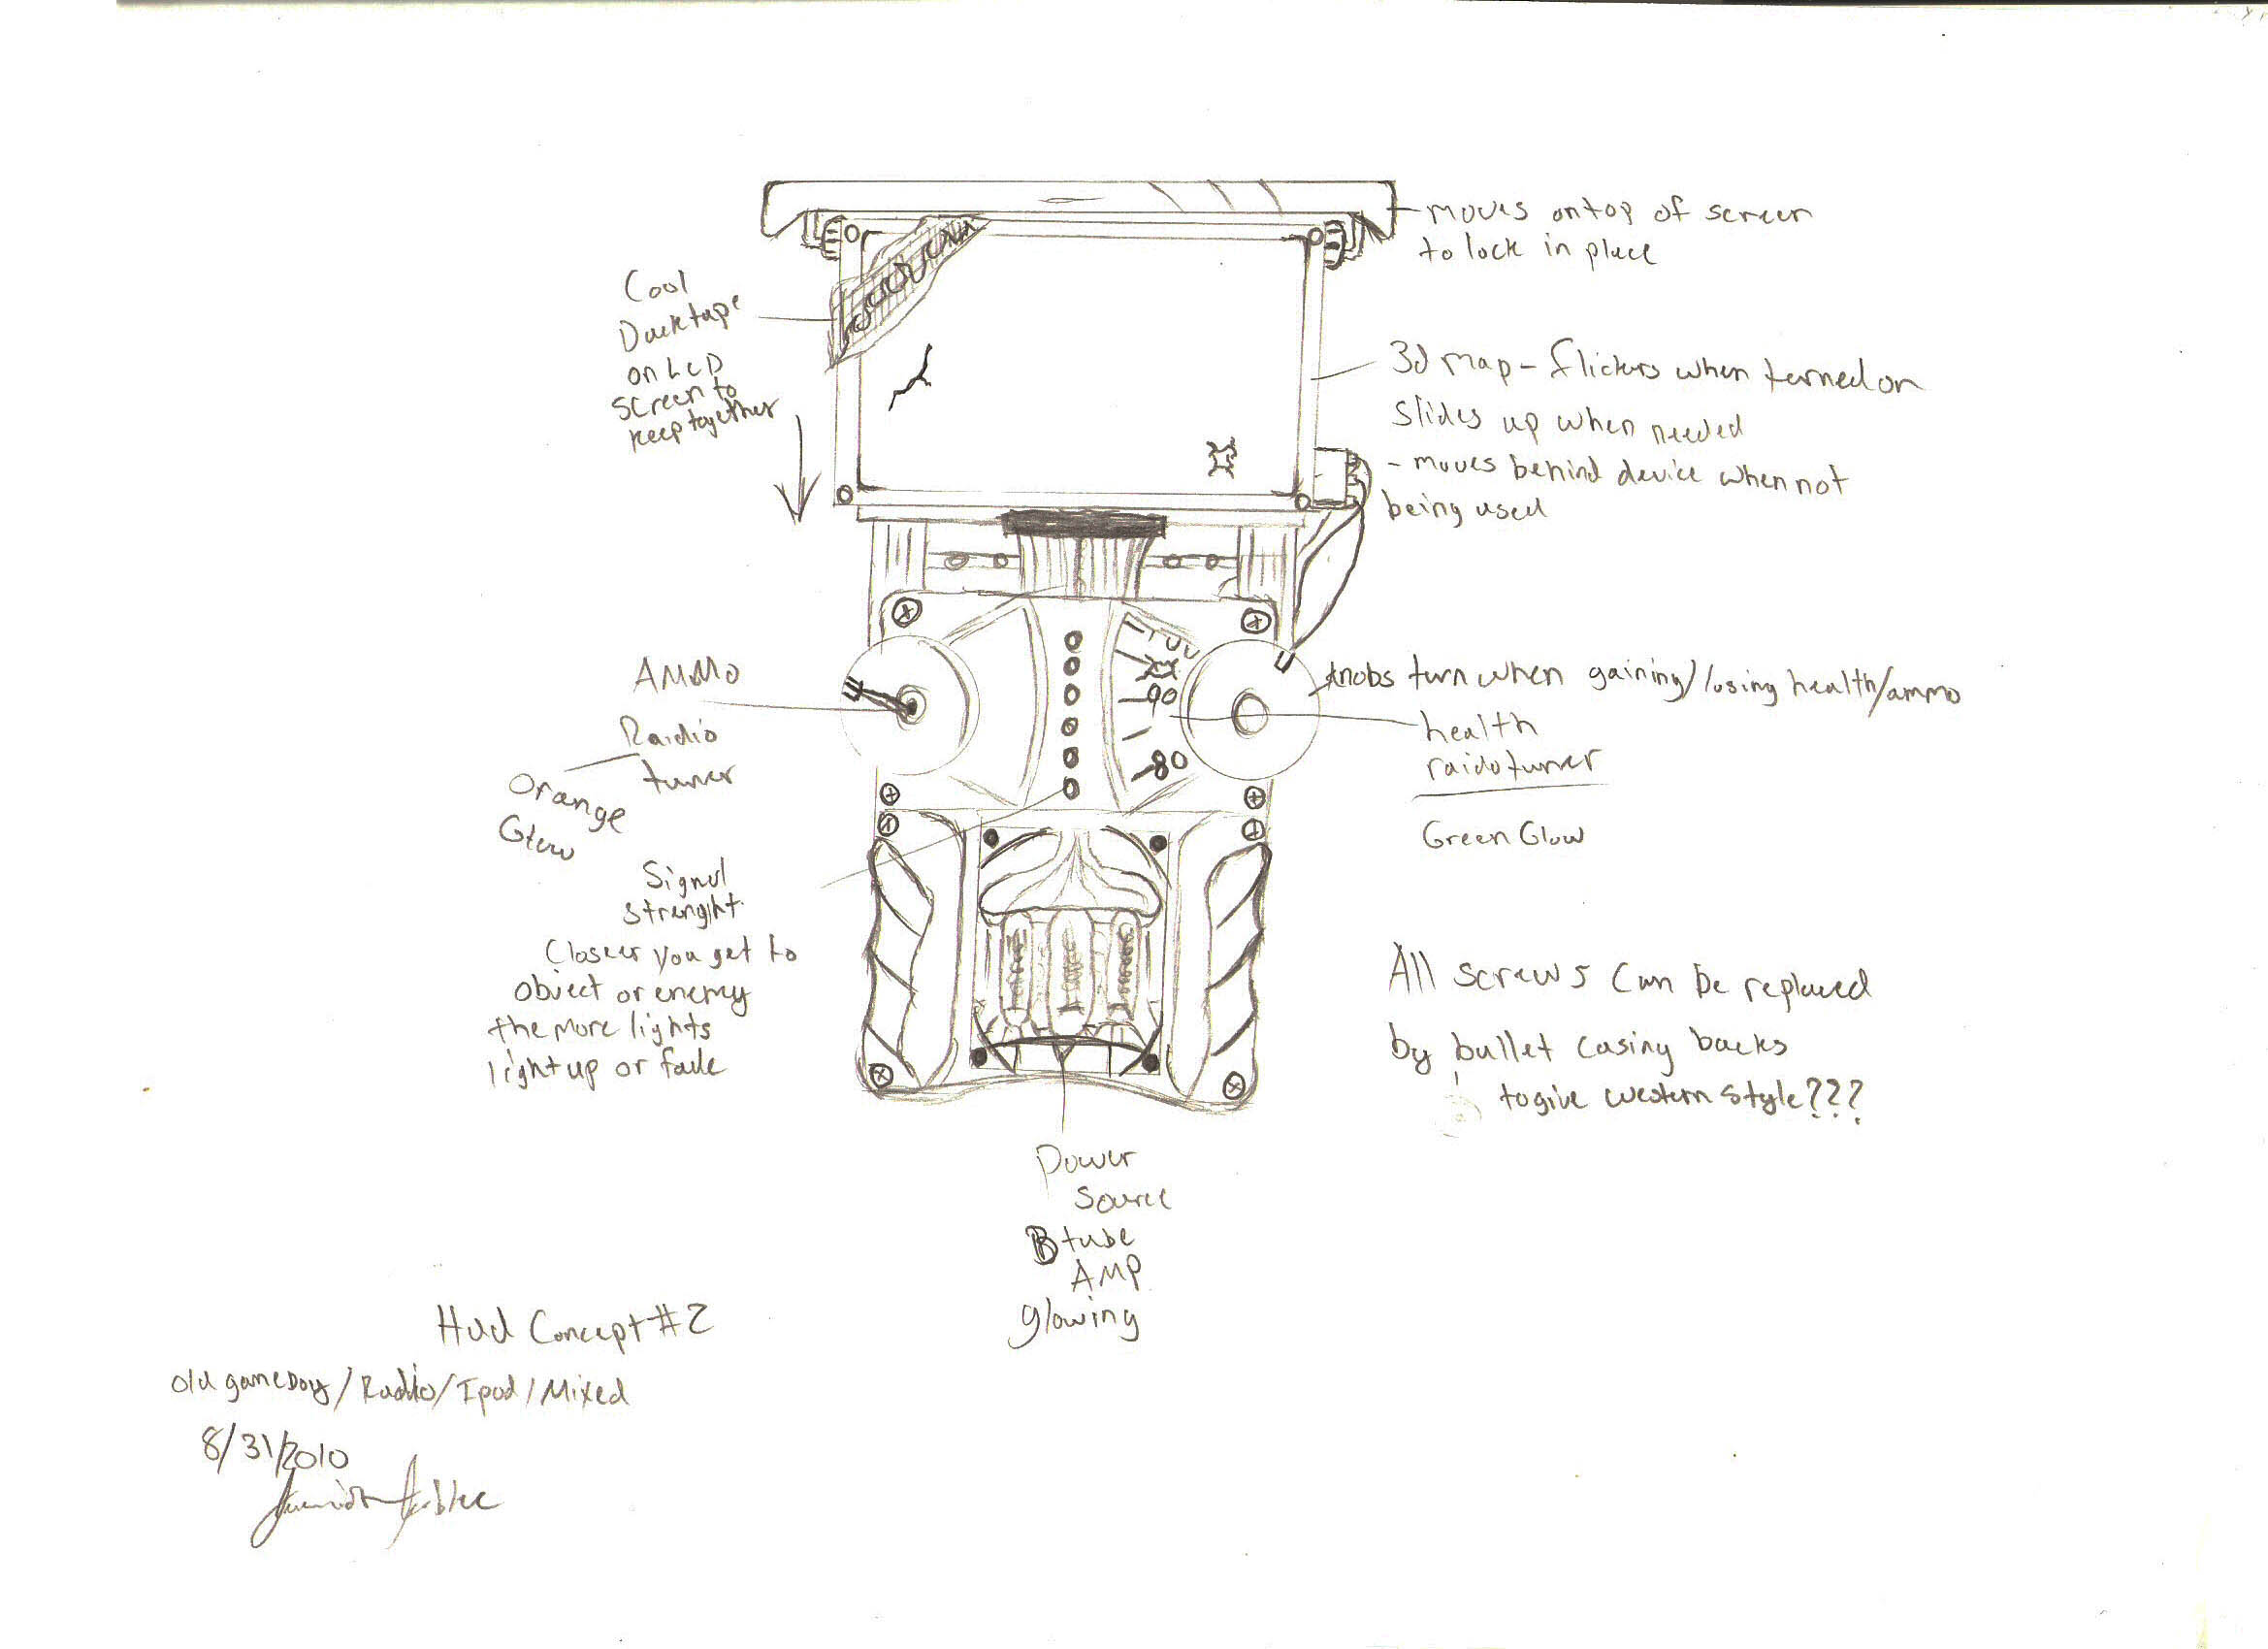 moves ontop of screen
to lock in place
Cool
Ducktape
on LCD
screen to
keep together
3d map - flickers when turned on
Slides up when needed
- moves behind device when not
being used
AMMO
Raidio
tuner
Orange
Glow
90
80
knobs turn when gaining/losing health/ammo
health
raidotuner
Green Glow
Signal
strenght
Closer you get to
object or enemy
the more lights
light up or fade
All screws can be replaced
by bullet casing backs
to give western style???
Power
Source
B tube
AMP
glowing
Hud Concept #2
Old gameboy/Radio/Ipod/Mixed
8/31/2010